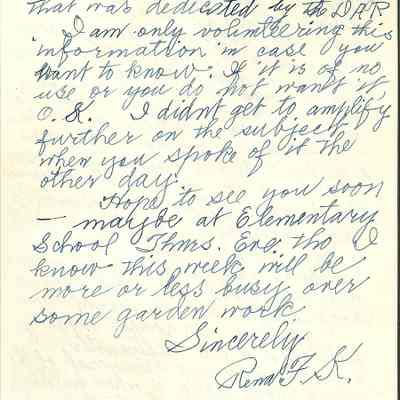 that was dedicated by the DAR
I am only volunteering this
information in case you
want to know. If it is of no
use or you do not want it,
O.K. I didnt get to amplify
further on the subject
when you spoke of it the
other day.
Hope to see you soon
— maybe at Elementary
School Thurs. Eve. tho I
know this week will be
more or less busy over
some garden work
Sincerely
Rena F. K.